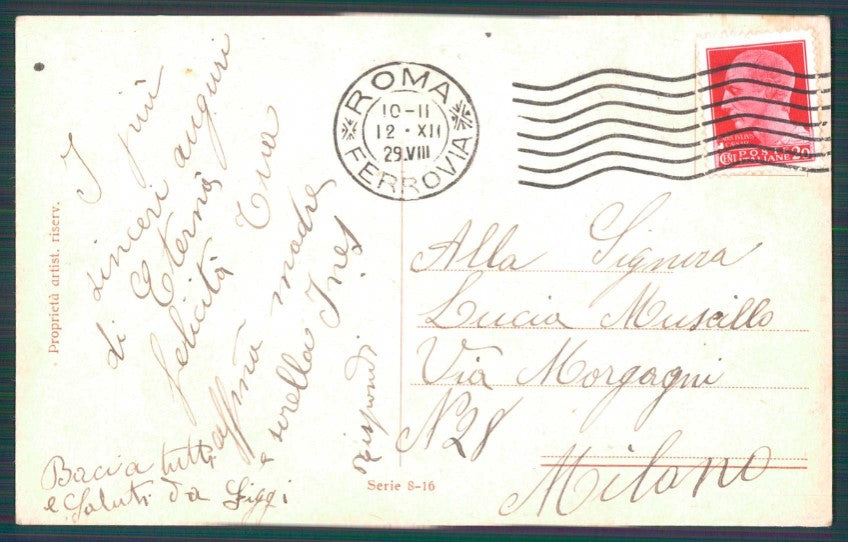 I più
sinceri auguri
di Eterna
felicità Tua
affma madre
e sorella Ines
rispondi
Baci a tutti
e saluti da Giggi
Proprietà artist. riserv.
Serie 8-16
ROMA
10-11
12 · XII
29.VIII
FERROVIA
POSTE
CENT ITALIANE 20
Alla Signora
Lucia Muscillo
Via Morgagni
N 28
Milano